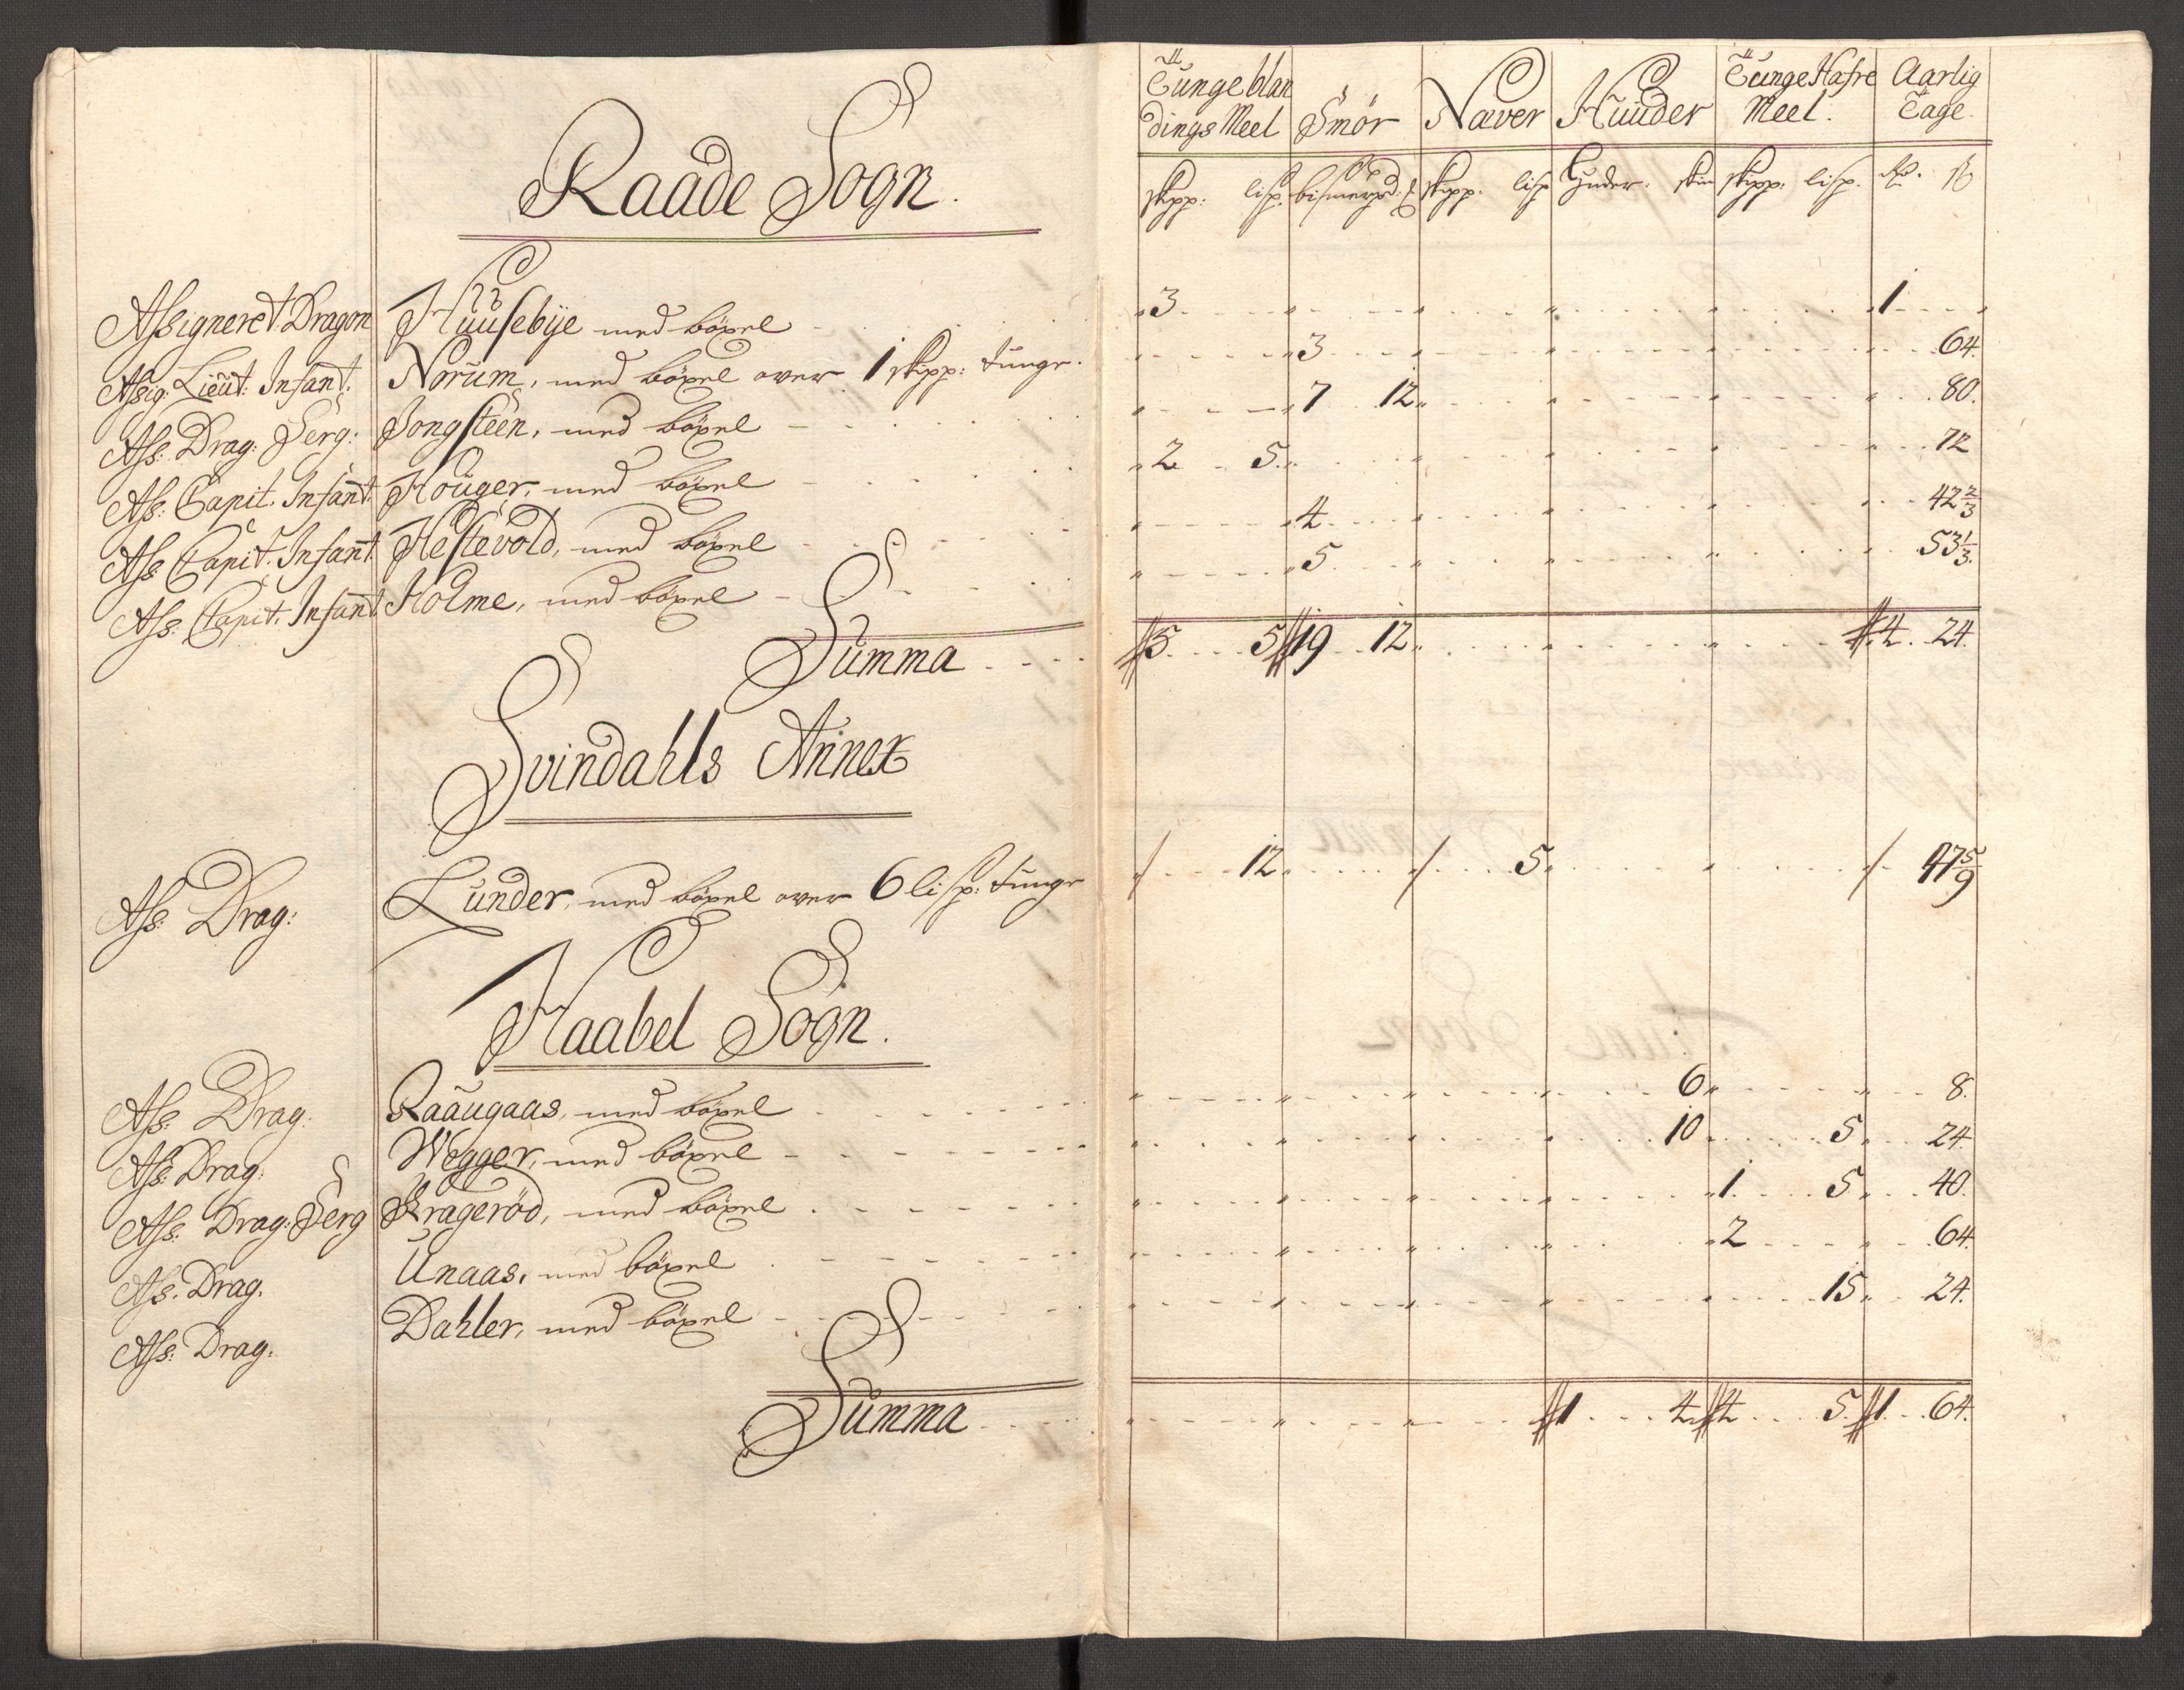 Tungeblan Smör Næver Huuder Tunge Hafre Aarlig
dings Meel Meel. Tage.
skpp: lisp. bismerpd skpp: lisp huder. skin skpp: lisp. Rd. ß
Raade Sogn.
Assigneret Dragon Huusebÿe med böxel 3 1
Assig: Lieut: Infant. Norum, med böxel over 1 skpp: tunge. 3 64
Ass: Drag: Serg: Jongsteen, med böxel 7 12 80.
Ass: Capit. Infant Houger, med böxel 2 5 72
Ass Capit. Infant Hestevold, med böxel 4 42 2/3
Ass: Capit. Infant Holme, med böxel 5 53 1/3.
Summa 5 5 19 12 4. 24.
Svindahls Annex
Ass: Drag: Lunder, med böxel over 6 lisp: tunge 12 5 47 5/9
Haabel Sogn.
Ass: Drag. Raaugaas, med böxel 6 8.
Ass: Drag: Wegger, med böxel 10 5 24
Ass: Drag: Serg Kragerød, med böxel 1 5 40.
Ass. Drag. Unaas, med böxel 2 64.
Ass: Drag. Dahler, med böxel 15 24.
Summa 1 4 4 5 1 64.